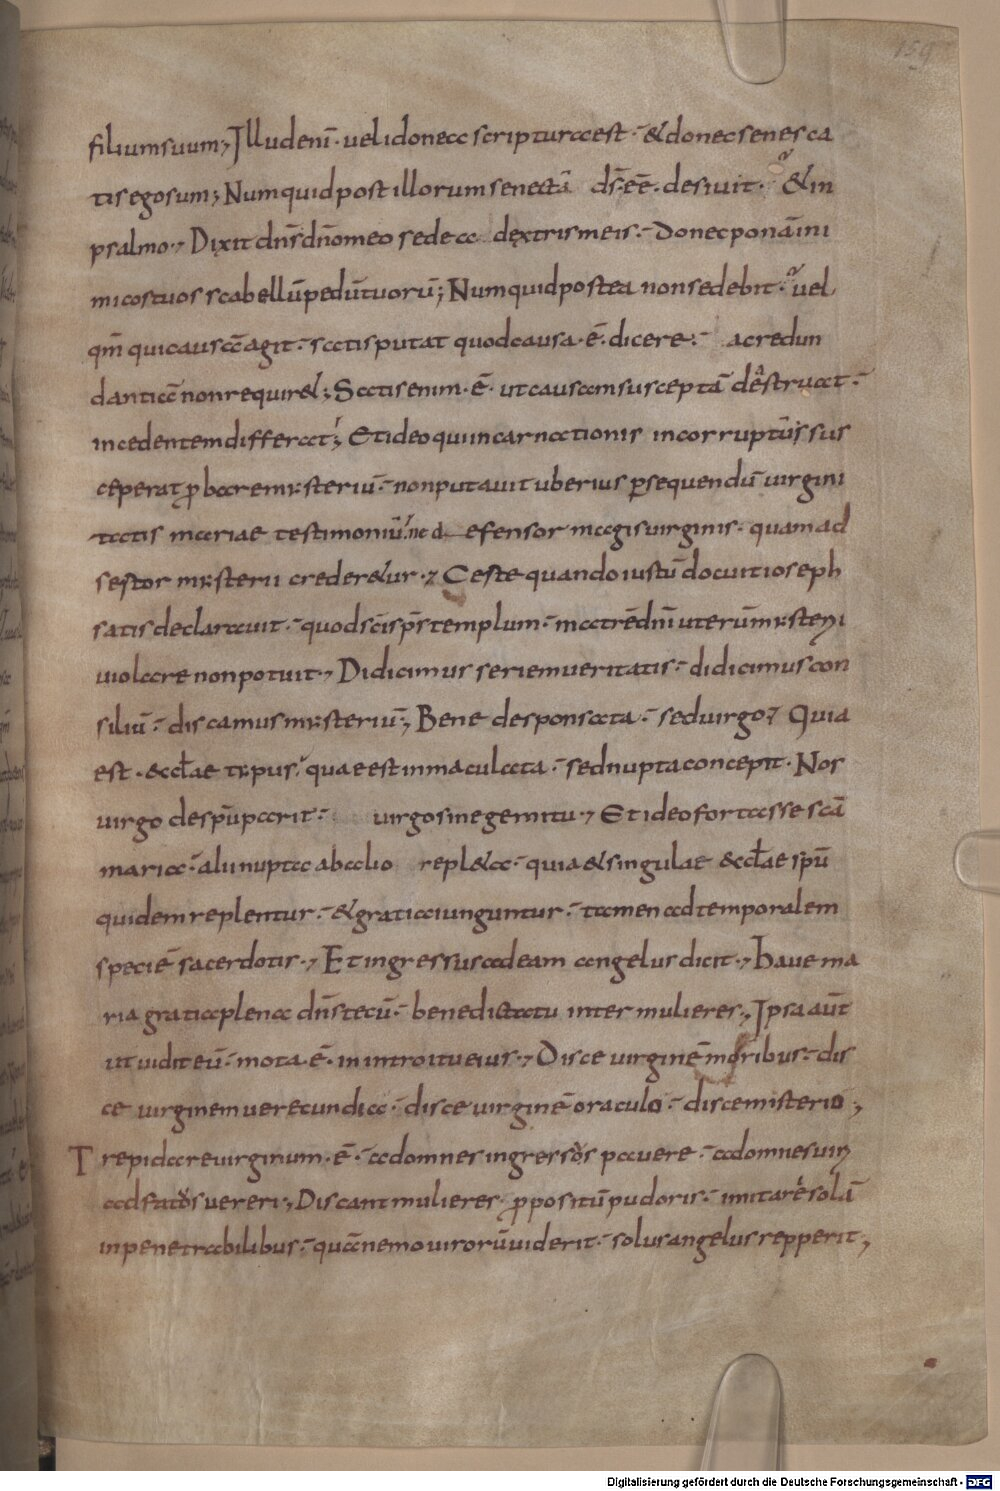 159
filium suum; Illud enī · uel idonea scriptura est · & donec senesca
tis ego sum; Numquid post illorum senectā ds̄ · eē · desiuit · & in
psalmo; Dixit dn̄s dn̄o meo sede a dęxtris meis · Donec ponā ini
micos tuos scabellū pedū tuorū; Numquid postea non sedebit · uel
qm̄ qui causā agit · satis putat quod causa · ē · dicere · a credun
dantiā non requir&; Satis enim · ē · ut causam susceptā destruat ·
incedentem differat; Et ideo qui incarnationis incorruptū sus
ceperat ꝓbare mysteriū · non putauit uberius ꝑsequendū uirgini
tatis mariae testimoniū · ne defensor magis uirginis · quam ad
sestor mysterii creder&ur; Certe quando iustū docuit ioseph
satis declarauit · quod sc̄i sp̄s templum · matrē dn̄i uterū mysterii
uiolare non potuit; Didicimus seriem ueritatis · didicimus con
siliū · discamus mysteriū; Bene desponsata · sed uirgo; Quia
est · æccl̄ae typus · quae est inmaculata · sed nupta concepit · Nos
uirgo de sp̄u parit · uirgo sine gemitu; Et ideo fortasse scā
maria · alii nupta ab alio repl&a · quia & singulae æccl̄ae sp̄u
quidem replentur · & gratia iunguntur · tamen ad temporalem
speciē sacerdotis; Et ingressus ad eam angelus dicit; haue ma
ria gratia plena dn̄s tecū · benedicta tu inter mulieres; Ipsa aūt
ut uidit eū · mota · ē · in introitu eius; Disce uirginē moribus · dis
ce uirginem uerecundia · disce uirginē oraculo · disce misterio;
Trepidare uirginum · ē · ad omnes ingressos pauere · ad omnes uiri
adfatos uereri; Discant mulieres ꝓpositū pudoris · imitare solā
inpenetrabilibus · quā nemo uirorū uiderit · solus angelus repperit;
Digitalisierung gefördert durch die Deutsche Forschungsgemeinschaft - DFG